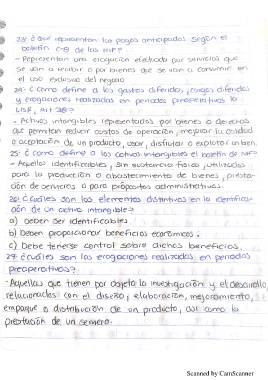 23- ¿Qué representan los pagos anticipados según el
boletín C-5 de las NIF?
- Representan una erogación efectuada por servicios que
se van a recibir o por bienes que se van a consumir en
el uso exclusivo del negocio
24- ¿Como define a los gastos diferidos, cargos diferidos
y erogaciones realizadas en periodos preoperativos la
LISR, Art. 38?
- Activos intangibles representados por bienes o derechos
que permitan reducir costos de operación, mejorar la calidad
o aceptación de un producto, usar, disfrutar o explotar un bien.
25- ¿Como define a los activos intangibles el boletín de NIF?
- Aquellos identificables, sin sustancia física, utilizados
para la producción o abastecimiento de bienes, presta-
ción de servicios o para propósitos administrativos.
26- ¿Cuáles son los elementos distintivos en la identifica-
ción de un activo intangible?
a) Deben ser identificables.
b) Deben proporcionar beneficios económicos.
c) Debe tenerse control sobre dichos beneficios.
27- ¿Cuáles son las erogaciones realizadas en periodos
preoperativos?
- Aquellas que tienen por objeto la investigación y el desarrollo,
relacionados con el diseño, elaboración, mejoramiento,
empaque o distribución de un producto, así como la
prestación de un servicio.
Scanned by CamScanner